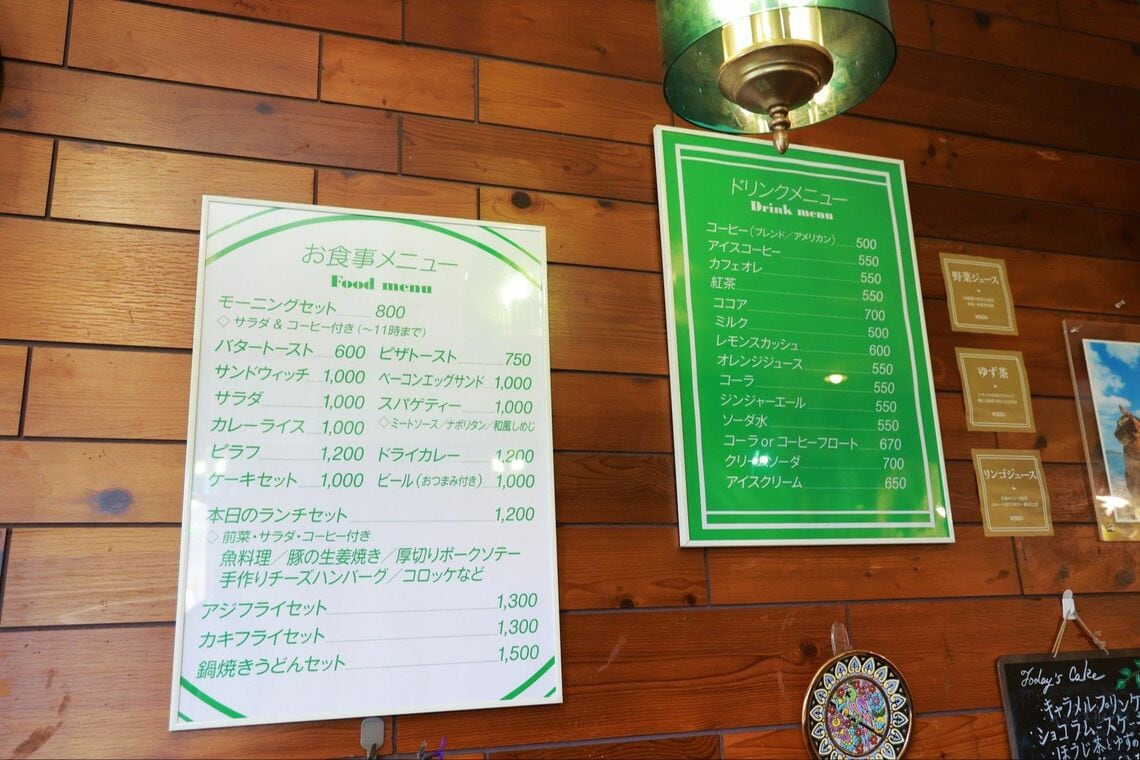 お食事メニュー
Food menu
モーニングセット 800
◇サラダ & コーヒー付き(〜11時まで)
バタートースト 600 ピザトースト 750
サンドウィッチ 1,000 ベーコンエッグサンド 1,000
サラダ 1,000 スパゲティー 1,000
カレーライス 1,000 ◇ミートソース/ナポリタン/和風しめじ
ピラフ 1,200 ドライカレー 1,200
ケーキセット 1,000 ビール(おつまみ付き) 1,000
本日のランチセット 1,200
◇前菜・サラダ・コーヒー付き
魚料理/豚の生姜焼き/厚切りポークソテー
手作りチーズハンバーグ/コロッケなど
アジフライセット 1,300
カキフライセット 1,300
鍋焼きうどんセット 1,500
ドリンクメニュー
Drink menu
コーヒー(ブレンド/アメリカン) 500
アイスコーヒー 550
カフェオレ 550
紅茶 550
ココア 700
ミルク 500
レモンスカッシュ 600
オレンジジュース 550
コーラ 550
ジンジャーエール 550
ソーダ水 550
コーラ or コーヒーフロート 670
クリームソーダ 700
アイスクリーム 650
野菜ジュース
¥500
ゆず茶
¥500
リンゴジュース
¥500
Today's Cake
・キャラメルプリンケ
・ショコラムースケー
・ほうじ茶とゆずの